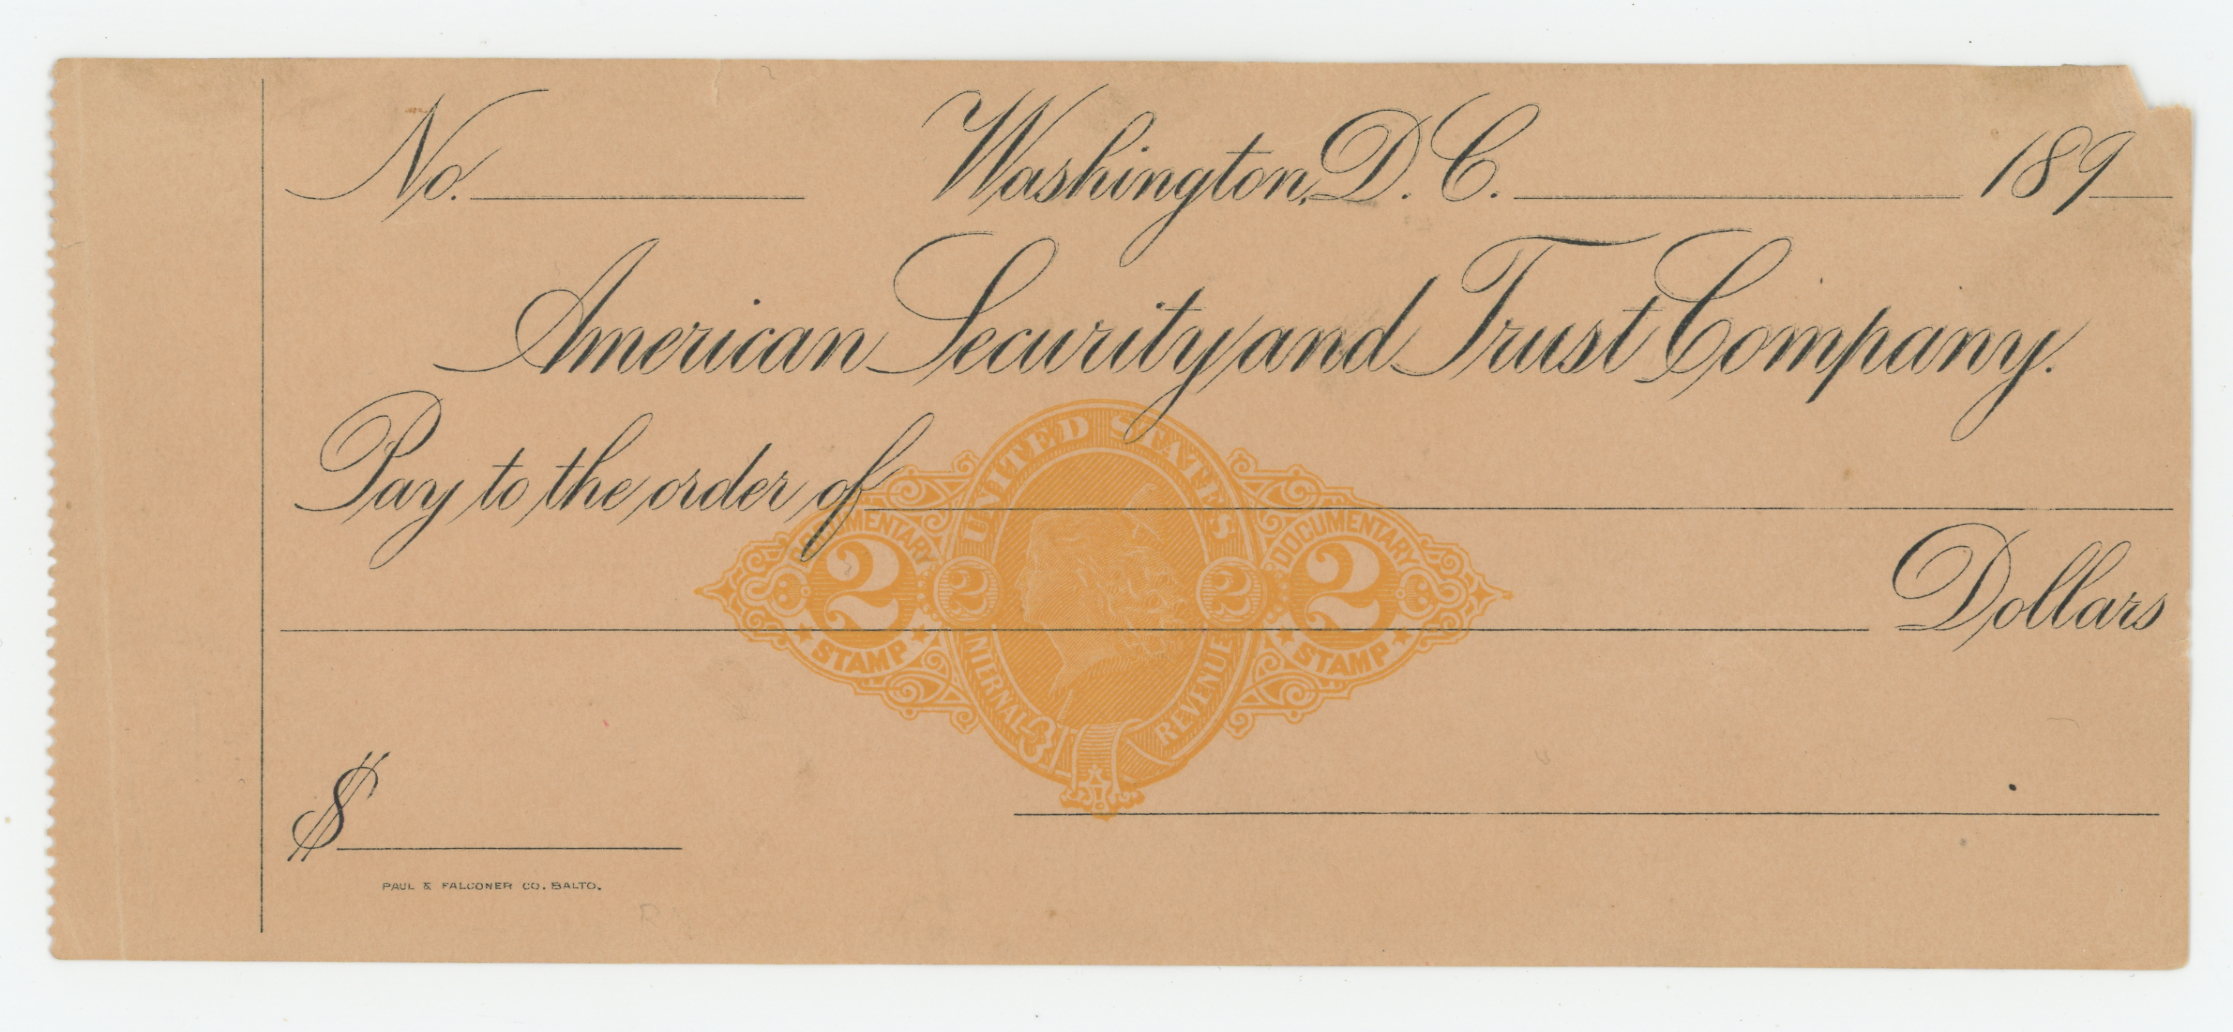 No. Washington, D. C. 189
American Security and Trust Company.
Pay to the order of
UNITED STATES
DOCUMENTARY DOCUMENTARY
2 2 2 2
STAMP STAMP
INTERNAL REVENUE
Dollars
$
PAUL & FALCONER CO. BALTO.